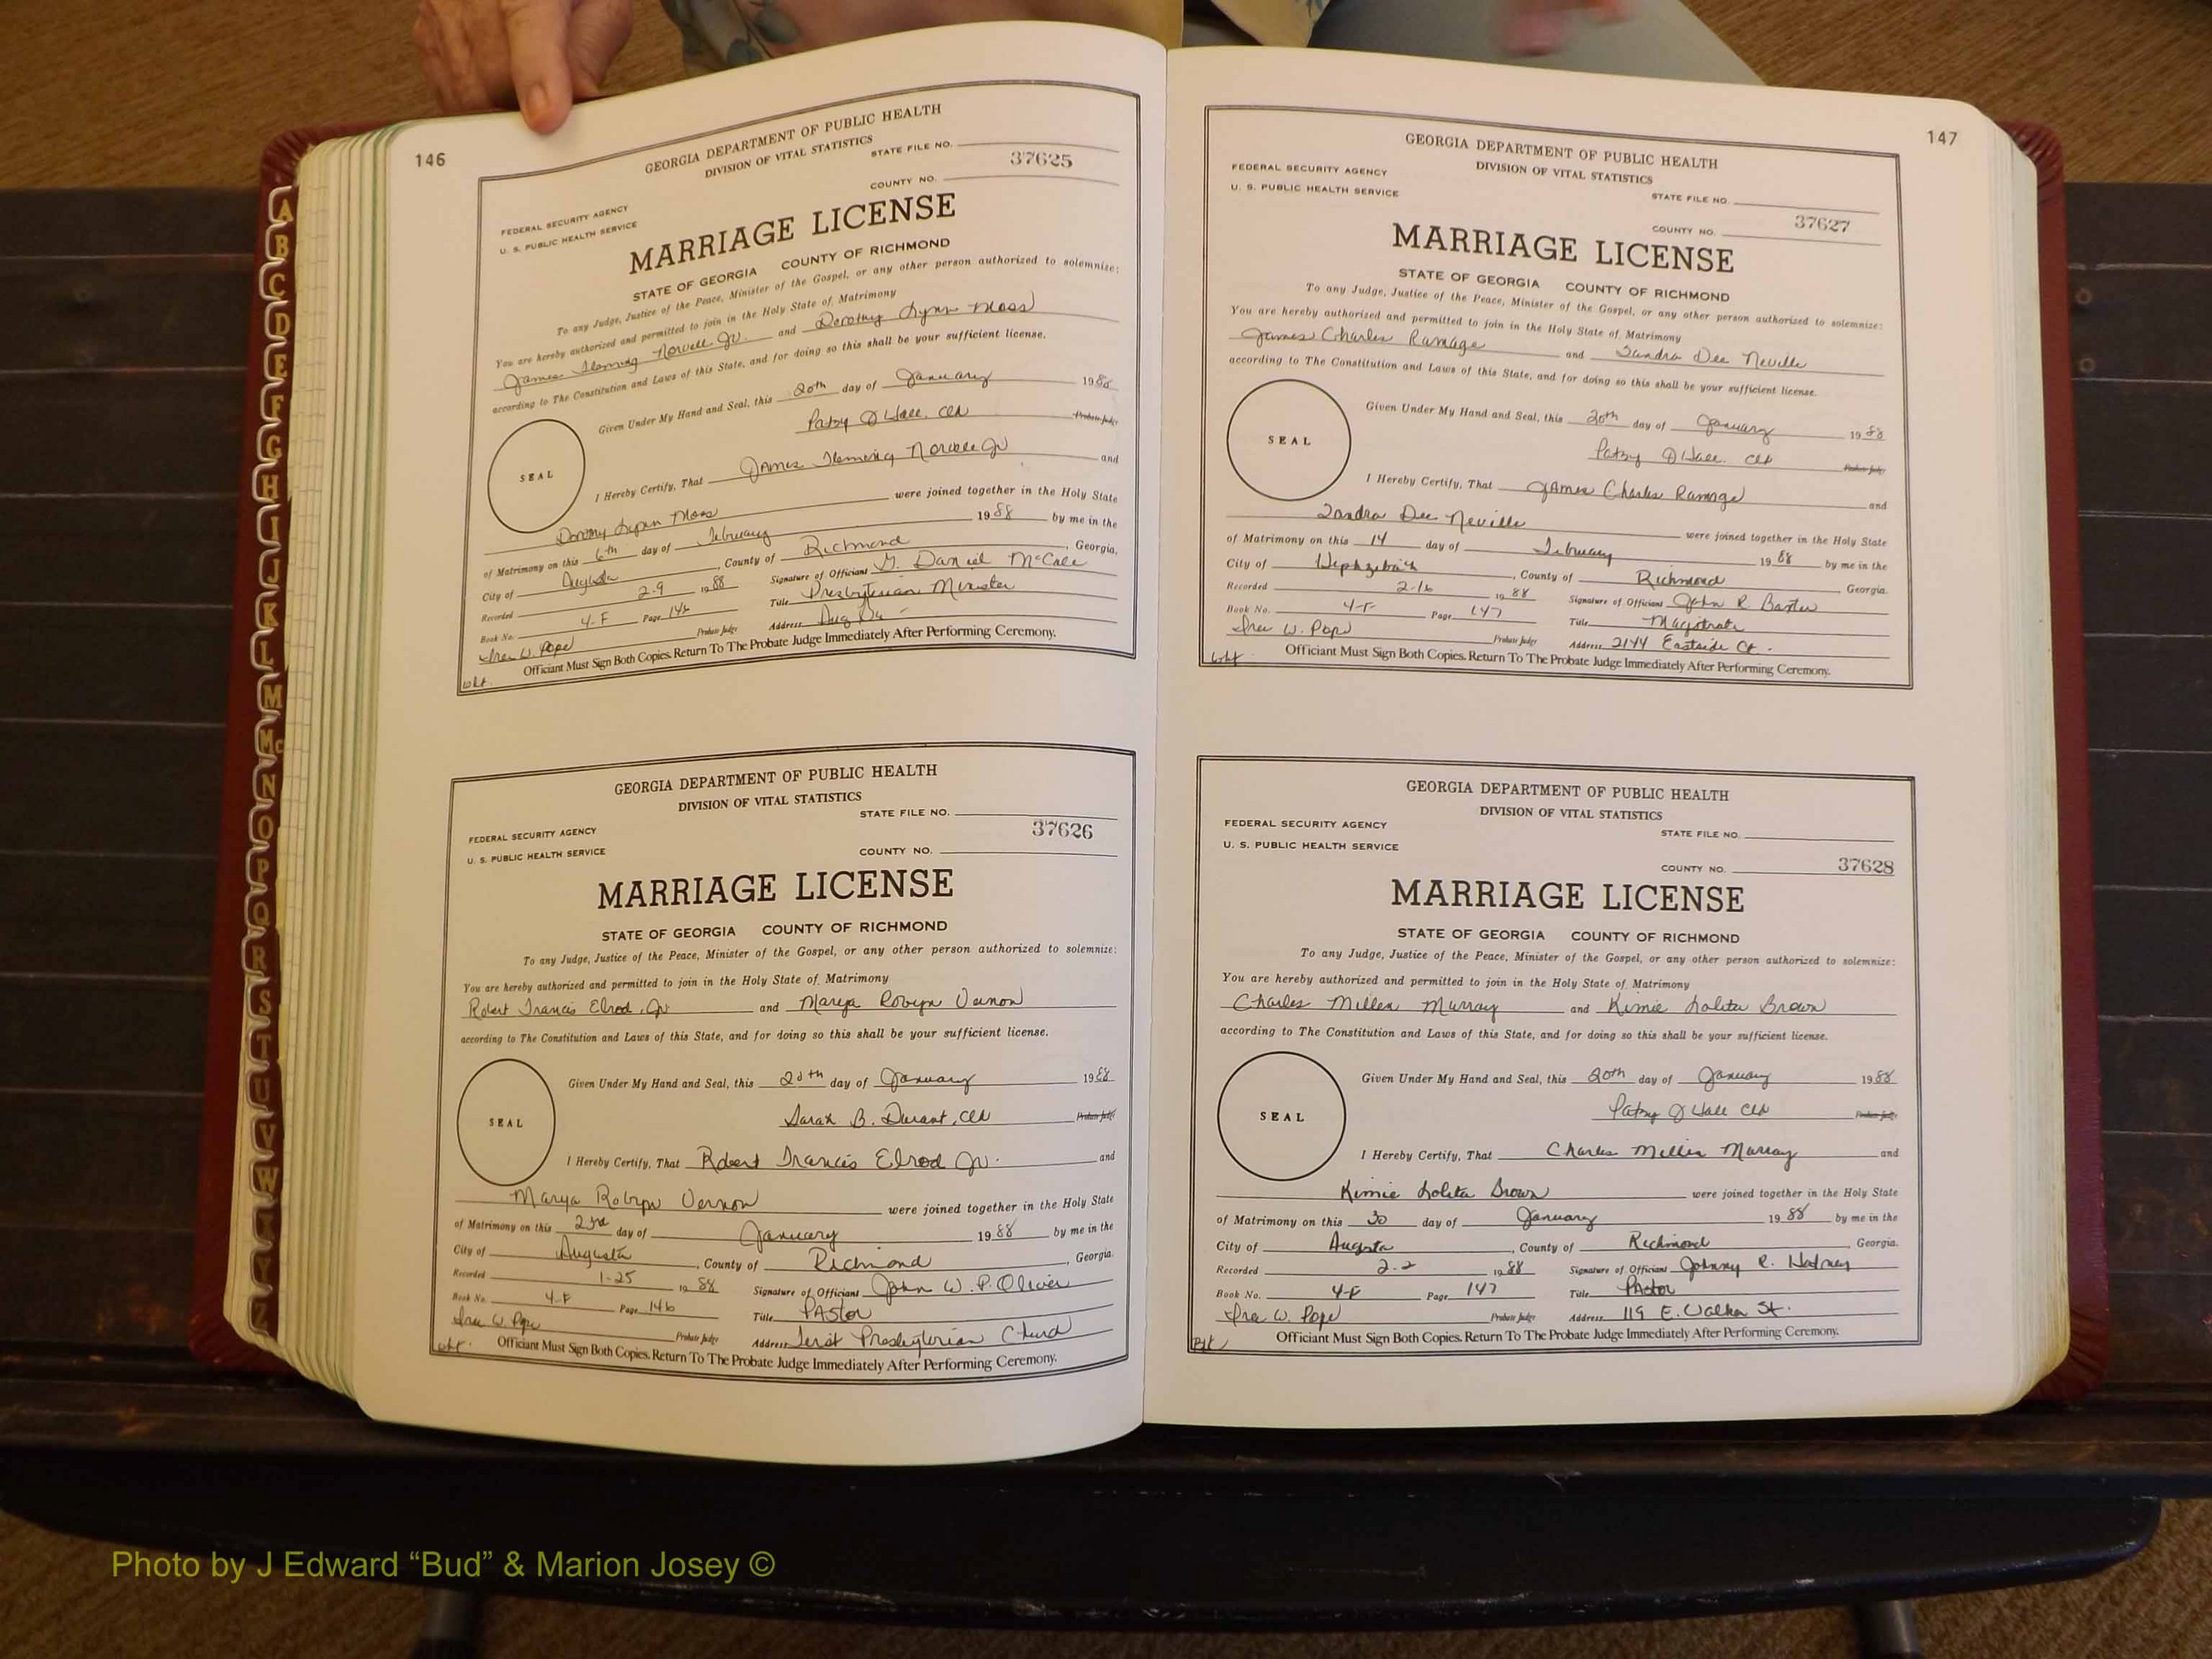 146
GEORGIA DEPARTMENT OF PUBLIC HEALTH
DIVISION OF VITAL STATISTICS
STATE FILE NO.
37625
COUNTY NO.
FEDERAL SECURITY AGENCY
U. S. PUBLIC HEALTH SERVICE
MARRIAGE LICENSE
STATE OF GEORGIA COUNTY OF RICHMOND
To any Judge, Justice of the Peace, Minister of the Gospel, or any other person authorized to solemnize:
You are hereby authorized and permitted to join in the Holy State of Matrimony
James Fleming Norvell Jr. and Dorothy Lynn Moss
according to The Constitution and Laws of this State, and for doing so this shall be your sufficient license.
Given Under My Hand and Seal, this 20th day of January 1988
Patsy O Hall, Clk Probate Judge
SEAL
I Hereby Certify, That James Fleming Norvell Jr and
Dorothy Lynn Moss were joined together in the Holy State
of Matrimony on this 6th day of February 1988 by me in the
City of Augusta, County of Richmond, Georgia.
Recorded 2-9 1988 Signature of Officiant Daniel McCall
Book No. 4-F Page 146 Title Presbyterian Minister
Probate Judge Address Aug Ga
W. Pope
Officiant Must Sign Both Copies. Return To The Probate Judge Immediately After Performing Ceremony.
GEORGIA DEPARTMENT OF PUBLIC HEALTH
DIVISION OF VITAL STATISTICS
STATE FILE NO.
37626
FEDERAL SECURITY AGENCY
U. S. PUBLIC HEALTH SERVICE
COUNTY NO.
MARRIAGE LICENSE
STATE OF GEORGIA COUNTY OF RICHMOND
To any Judge, Justice of the Peace, Minister of the Gospel, or any other person authorized to solemnize:
You are hereby authorized and permitted to join in the Holy State of Matrimony
Robert Francis Elrod, Jr. and Marya Robyn Vernon
according to The Constitution and Laws of this State, and for doing so this shall be your sufficient license.
Given Under My Hand and Seal, this 20th day of January 1988
Sarah B. Durant, Clk Probate Judge
SEAL
I Hereby Certify, That Robert Francis Elrod Jr. and
Marya Robyn Vernon were joined together in the Holy State
of Matrimony on this 23rd day of January 1988 by me in the
City of Augusta, County of Richmond, Georgia.
Recorded 1-25 1988 Signature of Officiant John W. P. Oliver
Book No. 4-F Page 146 Title Pastor
W. Pope Probate Judge Address First Presbyterian Church
Officiant Must Sign Both Copies. Return To The Probate Judge Immediately After Performing Ceremony.
147
GEORGIA DEPARTMENT OF PUBLIC HEALTH
DIVISION OF VITAL STATISTICS
FEDERAL SECURITY AGENCY
U. S. PUBLIC HEALTH SERVICE
STATE FILE NO.
37627
COUNTY NO.
MARRIAGE LICENSE
STATE OF GEORGIA COUNTY OF RICHMOND
To any Judge, Justice of the Peace, Minister of the Gospel, or any other person authorized to solemnize:
You are hereby authorized and permitted to join in the Holy State of Matrimony
James Charles Ramage and Sandra Dee Neville
according to The Constitution and Laws of this State, and for doing so this shall be your sufficient license.
Given Under My Hand and Seal, this 20th day of January 1988
Patsy O Hall, Clk Probate Judge
SEAL
I Hereby Certify, That James Charles Ramage and
Sandra Dee Neville were joined together in the Holy State
of Matrimony on this 14 day of February 1988 by me in the
City of Hephzibah, County of Richmond Georgia.
Recorded 2-16 1988 Signature of Officiant John R Baxter
Book No. 4-F Page 147 Title Magistrate
W. Pope Probate Judge Address 2144 Eastside Ct.
Officiant Must Sign Both Copies. Return To The Probate Judge Immediately After Performing Ceremony.
GEORGIA DEPARTMENT OF PUBLIC HEALTH
DIVISION OF VITAL STATISTICS
FEDERAL SECURITY AGENCY
U. S. PUBLIC HEALTH SERVICE
STATE FILE NO.
37628
COUNTY NO.
MARRIAGE LICENSE
STATE OF GEORGIA COUNTY OF RICHMOND
To any Judge, Justice of the Peace, Minister of the Gospel, or any other person authorized to solemnize:
You are hereby authorized and permitted to join in the Holy State of Matrimony
Charles Millen Murray and Kimie Lolita Brown
according to The Constitution and Laws of this State, and for doing so this shall be your sufficient license.
Given Under My Hand and Seal, this 20th day of January 1988
Patsy O Hall Clk Probate Judge
SEAL
I Hereby Certify, That Charles Millen Murray and
Kimie Lolita Brown were joined together in the Holy State
of Matrimony on this 30 day of January 1988 by me in the
City of Augusta, County of Richmond, Georgia.
Recorded 2-2 1988 Signature of Officiant Johnny R.
Book No. 4-F Page 147 Title Pastor
W. Pope Probate Judge Address 119 E. Walker St.
Officiant Must Sign Both Copies. Return To The Probate Judge Immediately After Performing Ceremony.
A
B
C
D
E
F
G
H
I
J
K
L
M
Mc
N
O
P
Q
R
S
T
U
V
W
X
Y
Z
Photo by J Edward “Bud” & Marion Josey ©